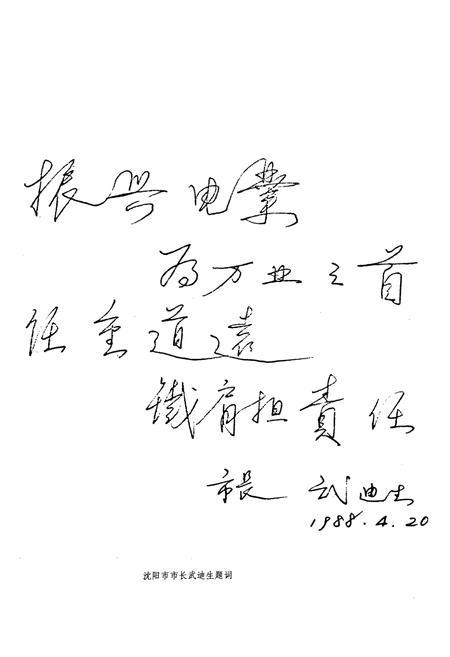 振兴电業
为万业之首
任重道遠
鐵肩担責任
市長 武迪生
1988.4.20
沈阳市市长武迪生题词